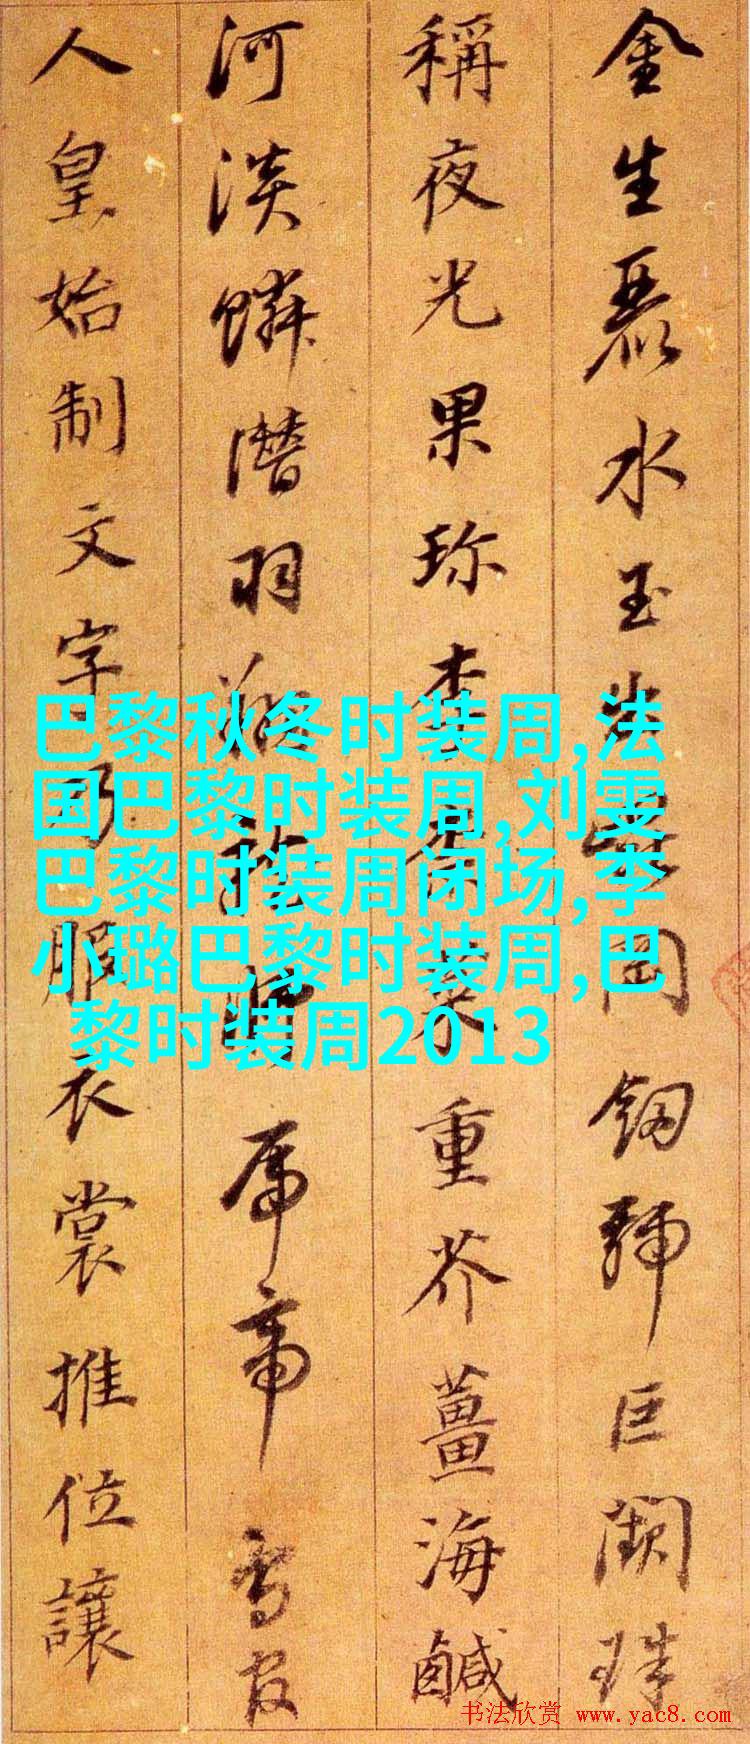 金生麗水玉出崑岡劍號巨闕珠
稱夜光果珍李柰菜重芥薑海鹹
河淡鱗潛羽翔龍師帝鳥官
人皇始制文字乃服衣裳推位讓
巴黎秋冬时装周,法
国巴黎时装周,刘雯
巴黎时装周闭场,李
小璐巴黎时装周,巴
黎时装周2013
书法欣赏 www.yac8.com